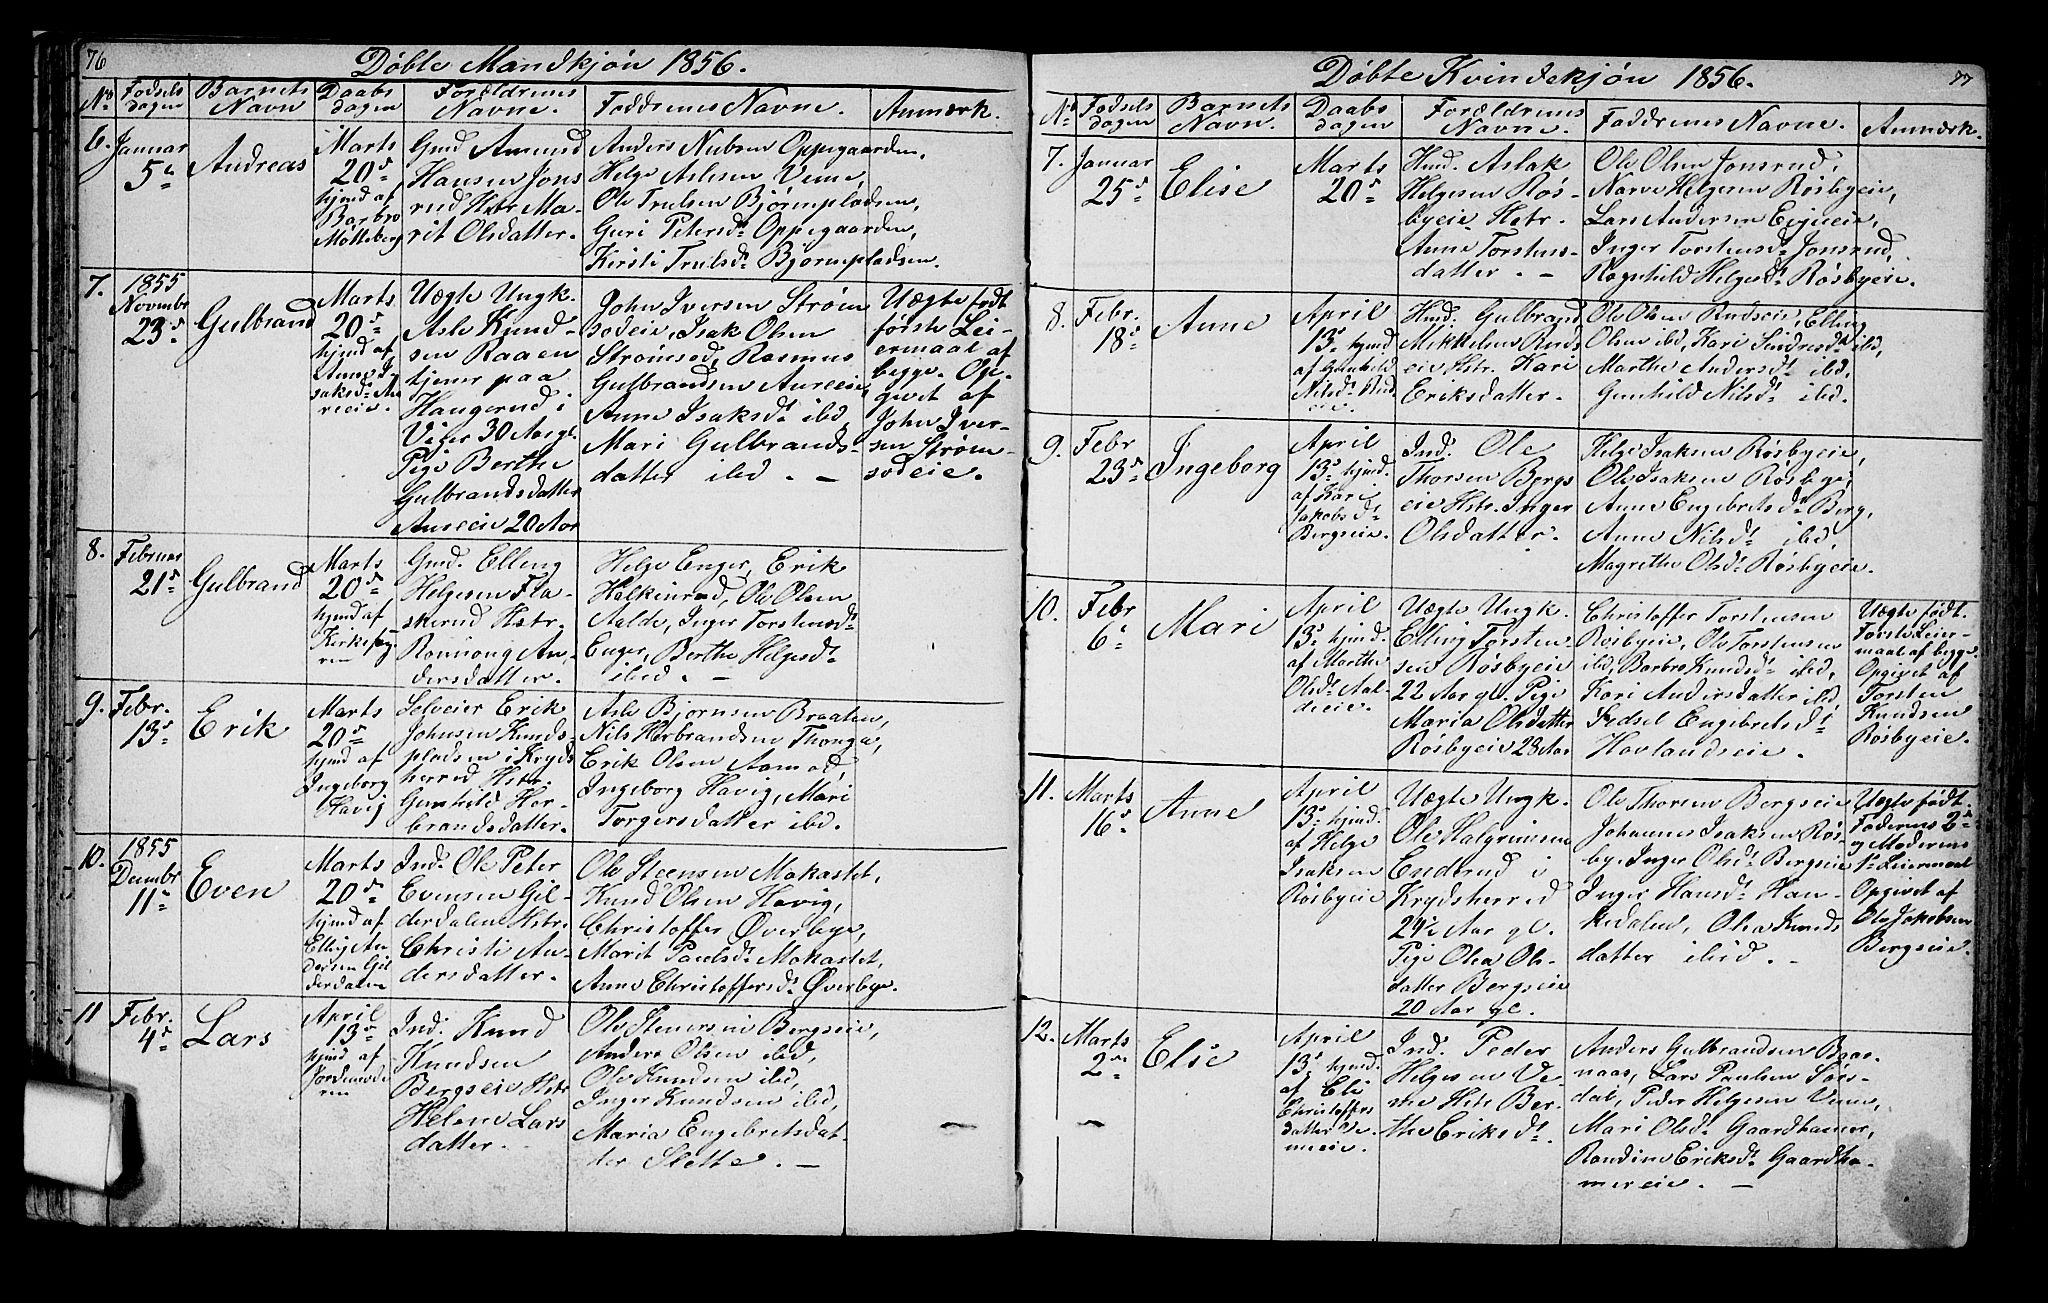 76
Døbte Mandkjøn 1856.
No
Fødsels
dagen
Barnets
Navn
Daabs
dagen
Forældrenes
Navne.
Faddrenes Navne.
Anmærk.
6.
Januar
5te
Andreas
Marts
20de
hjmd af
Barbro
Møtteberg
Gmd Amund
Hansen Jons
rud Hstr Ma-
rit Olsdatter.
Anders Nubsen Oppegaarden,
Helge Aslesen Veme,
Ole Trulsen Bjørnpladsen,
Guri Petersdt Oppegaarden,
Kirsti Trulsdt Bjørnpladsen.
7.
1855
Novembr
23de
Gulbrand
Marts
20de
hjmd af
Anne I-
saksdt Au
reeie.
Uægte Ungk.
Asle Knud-
sen Raaen
tjener paa
Haugerud i
Viger 30 Aar gl.
Pige Berthe
Gulbrandsdatter
Aureeie 20 Aar
John Iversen Strøm
sodeie, Isak Olsen
Strømsod, Rasmus
Gulbrandsen Aureeie,
Anne Isaksdt ibd,
Mari Gulbrands-
datter ibd. —
Uægte født
første Lei-
ermaal af
begge. Op-
givet af
John Iver-
sen Strøm-
sodeie.
8.
Februar
21de
Gulbrand
Marts
20de
hjmd af
Kirkesan-
ren
Gmd. Elling
Helgesen Fla-
skerud Hstr.
Romiong An-
dersdatter.
Helge Enger, Erik
Halkinrud, Ole Olsen
Aalde, Inger Torstensdt
Enger, Berthe Helgesdt
ibid. —
9.
Febr.
13de
Erik
Marts
20de
hjmd af
Ingeborg
Havig
Selveier Erik
Johnsen Knuds-
pladsen i Kryds
herred Hstr.
Gunhild Her-
brandsdatter.
Asle Bjørnsen Braaten,
Nils Herbrandsen Thonga,
Erik Olsen Aamod,
Ingeborg Havig, Mari
Torgersdatter ibd.
10.
1855
Decmbr
11te
Even
Marts
20de
hjmd af
Elling An
dersen Gil
derdalen
Inds Ole Peter
Evensen Gil-
derdalen Hstr.
Christi An-
dersdatter.
Ole Steensen Makastet,
Knud Olsen Havig,
Christoffer Øverbye,
Marit Paulsdt Makastet,
Anne Christoffersdt Øverbye.
11
Febr.
4de
Lars
April
13de
hjmd af
Jordemode
ren
Inds. Knud
Knudsen
Bergseie Hstr
Helene Lars
datter.
Ole Stenersen Bergseie,
Anders Olsen ibd,
Ole Knudsen ibd,
Inger Knudsen ibd,
Maria Engebretsdat-
ter Slette. —
77
Døbte Kvindekjøn 1856.
No
Fødsels
dagen
Barnets
Navn.
Daabs
dagen
Forældrenes
Navne.
Faddrenes Navne.
Anmærk.
7.
Januar
25de
Elise
Marts
20de
Hmd. Aslak
Helgesen Røs-
byeie Hstr.
Anne Torstens-
datter. —
Ole Olsen Jonsrud,
Narve Helgesen Røsbyeie,
Lars Andersen Eijeeie,
Inger Torstensdt Jonsrud,
Ragnhild Helgesdt Røsbyeie.
8.
Febr.
18de
Anne
April
13de hjmd
af Gunhild
Nilsdt Rud
eie.
Hmd. Gulbrand
Mikkelsen Ruds
eie Hstr. Kari
Eriksdatter.
Ole Olsen Rudseie, Elling
Olsen ibd, Kari Sindresdt ibd,
Marthe Andersdt ibd,
Gunhild Nilsdt ibd.
9.
Febr
23de
Ingeborg
April
13de hjmd.
af Kari
Jakobsdt
Bergseie.
Ind. Ole
Thorsen Bergs
eie Hstr. Inger
Olsdatter.
Helge Isaksen Røsbyeie,
Ole Isaksen Røsbye,
Anne Engebretsdt Berg,
Anne Nilsdt ibid,
Magrethe Olsdt Røsbyeie.
10.
Febr
6te
Mari
April
13de hjmd.
af Marthe
Olsdt Aal-
deeie.
Uægte Ungk.
Elling Torsten
sen Røsbyeie
22 Aar gl. Pige
Maria Olsdatter
Røsbyeie 28 Aar
Christoffer Torstensen
Røsbyeie, Ole Torstensen
ibd, Barbro Knudsdt ibid,
Kari Andersdatter ibid,
Sidsel Engebretsdt
Hovlandseie.
Uægte født.
Første Leier-
maal af begge.
Opgivet af
Torsten
Knudsen
Røsbyeie.
11.
Marts
16de
Anne
April
13de hjmd.
af Helge
Isaksen
Røsbyeie
Uægte Ungk.
Ole Halgrimsen
Endrud i
Krydsherred
29½ Aar gl.
Pige Olea Ols-
datter Bergseie
20 Aar gl.
Ole Thorsen Bergseie
Johannes Isaksen Røs-
bye, Inger Olsdt Bergseie
Inger Hansdt Han-
kedalen, Olea Knuds
datter ibid. —
Uægte født.
Faderens 2de
og Moderens
1ste Leiermaal
Opgivet af
Ole Jakobsen
Bergseie.
12.
Marts
2den
Elise
April
13de hjmd.
af Eli
Christoffers
datter Ve-
meeie.
Ind. Peder
Helgesen Ve-
meeie Hstr Ber-
the Eriksdt.
Anders Gulbrandsen Baas-
naas, Lars Paulsen Sørs-
dal, Peder Helgesen Veme,
Mari Olsdt Gaardhamer,
Randine Eriksdt Gaardha-
mereie. —